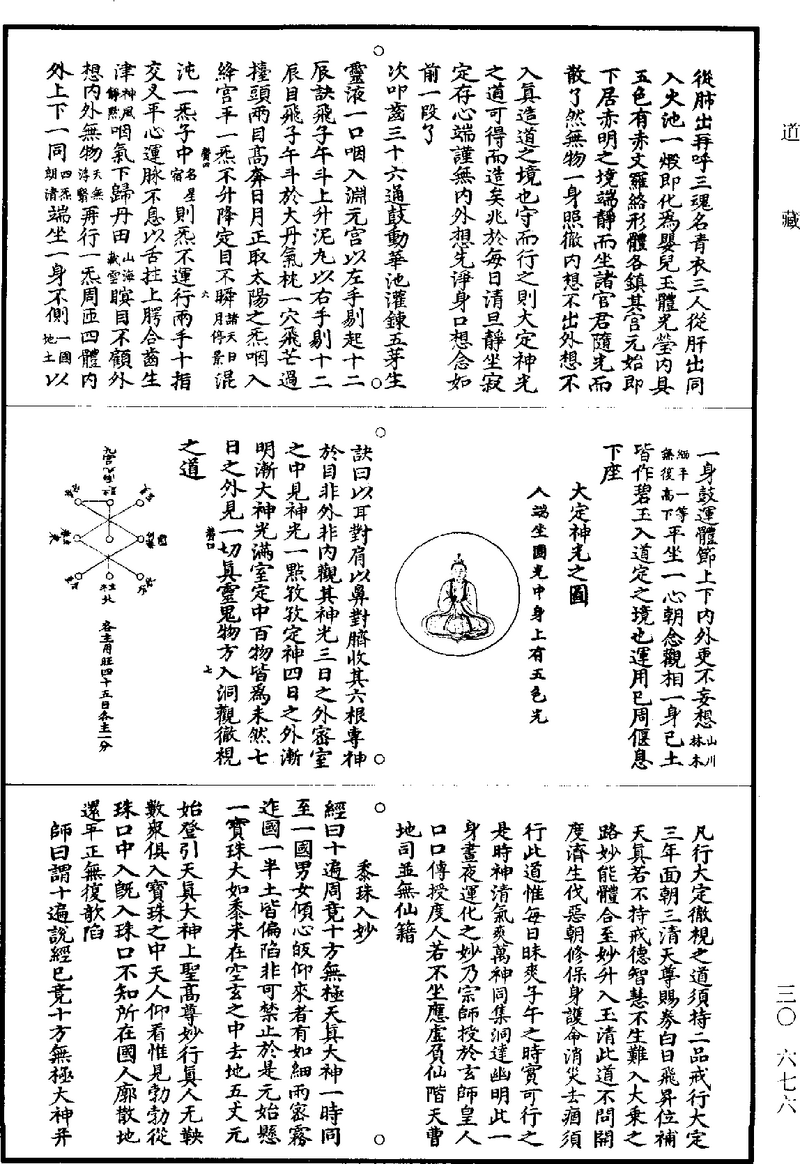 道藏
三〇 六七六
從肺出再呼三魂名青衣三人從肝出同
入火池一煅即化為嬰兒玉體光瑩內具
五色有赤文羅絡形體各鎮其宮元始即
下居赤明之境端靜而坐諸官君隨光而
散了然無物一身照徹內想不出外想不
入真造道之境也守而行之則大定神光
之道可得而造矣兆於每日清旦靜坐寂
定存心端謹無內外想先淨身口想念如
前一段了
次叩齒三十六通鼓動華池灌鍊五芽生
靈液一口咽入淵元宮以左手剔起十二
辰訣飛子午斗上升泥丸以右手剔十二
辰目飛子午斗於大丹氣枕一穴飛芒過
擡頭兩目高奔日月正取太陽之炁咽入
絳宮平一炁不升降定目不瞬諸天日月停景混
沌一炁子中名星宿則炁不運行兩手十指
交叉平心運脉不息以舌拄上腭合齒生
津神風靜默咽氣下歸丹田山海藏雲瞑目不顧外
想內外無物天無浮翳再行一炁周匝四體內
外上下一同四炁朝清端坐一身不側一國地土以
一身鼓運體節上下內外更不妄想山川林木
細平一等無復高下平坐一心朝念觀相一身已土
皆作碧玉入道定之境也運用已周偃息
下座
大定神光之圖
人端坐圓光中身上有五色光
訣曰以耳對肩以鼻對臍收其六根專神
於目非外非內觀其神光三日之外密室
之中見神光一點孜孜定神四日之外漸
明漸大神光滿室定中百物皆為未然七
日之外見一切真靈鬼物方入洞觀徹視
之道
北
各主用旺四十五日各主一分
凡行大定徹視之道須持二品戒行大定
三年面朝三清天尊賜券白日飛昇位補
天真若不持戒德智慧不生難入大乘之
路妙能體合至妙升入玉清此道不問開
度濟生伐惡朝修保身護命消災去痼須
行此道惟每日昧爽子午之時實可行之
是時神清氣爽萬神同集洞達幽明此一
身晝夜運化之妙乃宗師授於玄師皇人
口口傳授度人若不坐應虛負仙階天曹
地司並無仙籍
黍珠入妙
經曰十遍周竟十方無極天真大神一時同
至一國男女傾心皈仰來者有如細雨密霧
迮國一半土皆偏陷非可禁止於是元始懸
一寶珠大如黍米在空玄之中去地五丈元
始登引天真大神上聖高尊妙行真人无鞅
數眾俱入寶珠之中天人仰看惟見勃勃從
珠口中入既入珠口不知所在國人廓散地
還平正無復欹陷
師曰謂十遍說經已竟十方無極大神并